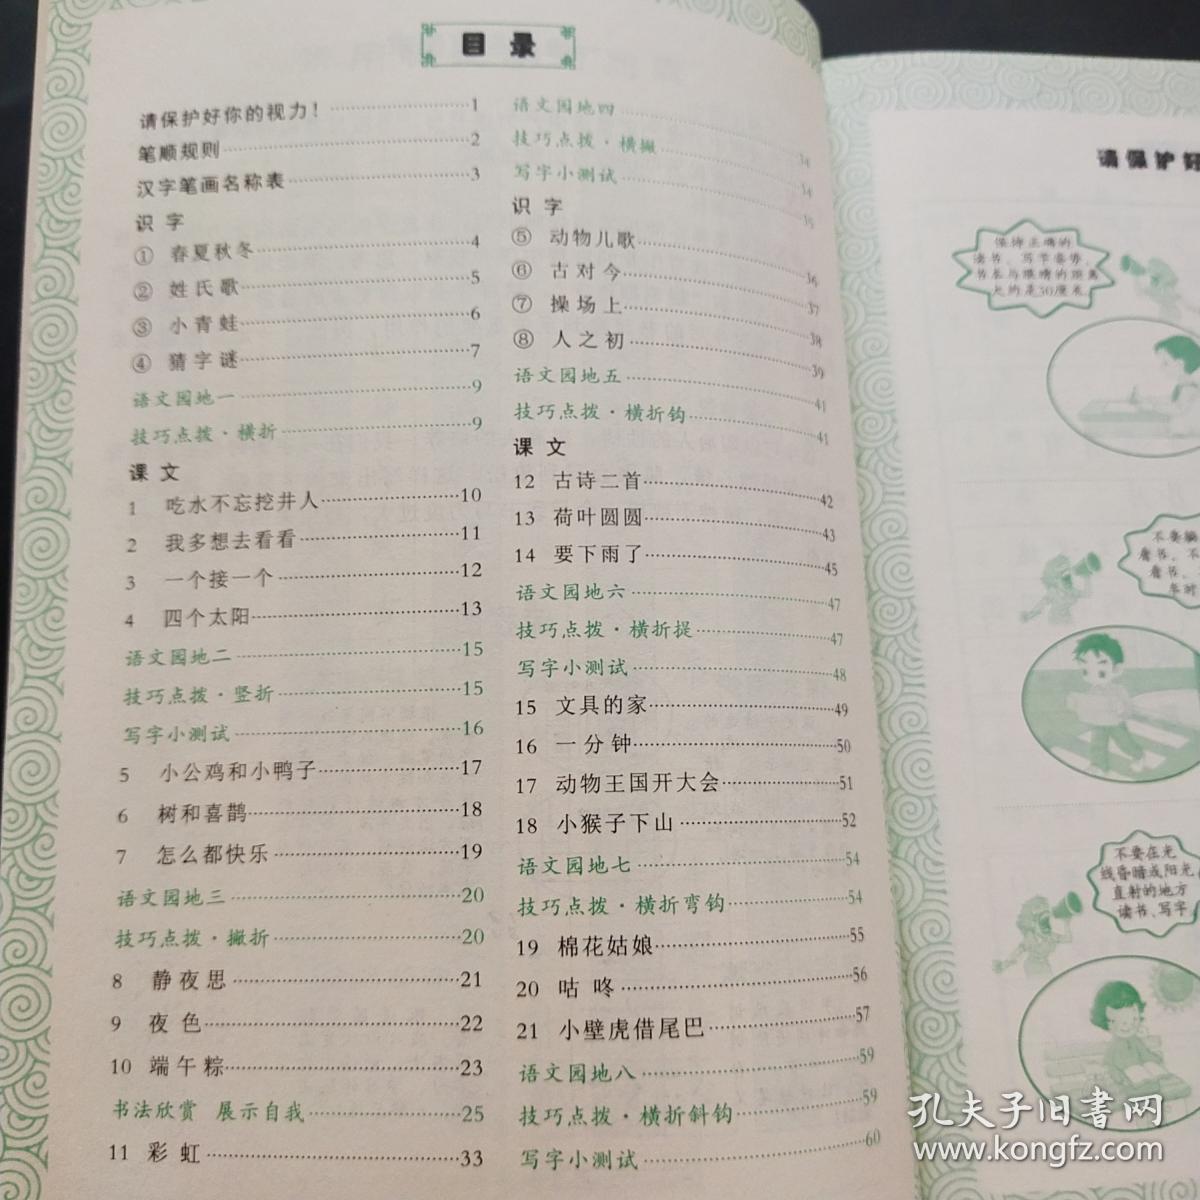 目录
请保护好你的视力！ 1
笔顺规则 2
汉字笔画名称表 3
识字
① 春夏秋冬 4
② 姓氏歌 5
③ 小青蛙 6
④ 猜字谜 7
语文园地一 9
技巧点拨·横折 9
课文
1 吃水不忘挖井人 10
2 我多想去看看 11
3 一个接一个 12
4 四个太阳 13
语文园地二 15
技巧点拨·竖折 15
写字小测试 16
5 小公鸡和小鸭子 17
6 树和喜鹊 18
7 怎么都快乐 19
语文园地三 20
技巧点拨·撇折 20
8 静夜思 21
9 夜色 22
10 端午粽 23
书法欣赏 展示自我 25
11 彩虹 33
语文园地四 34
技巧点拨·横撇 34
写字小测试 35
识字
⑤ 动物儿歌 36
⑥ 古对今 37
⑦ 操场上 38
⑧ 人之初 39
语文园地五 41
技巧点拨·横折钩 41
课文
12 古诗二首 42
13 荷叶圆圆 43
14 要下雨了 45
语文园地六 47
技巧点拨·横折提 47
写字小测试 48
15 文具的家 49
16 一分钟 50
17 动物王国开大会 51
18 小猴子下山 52
语文园地七 54
技巧点拨·横折弯钩 54
19 棉花姑娘 55
20 咕咚 56
21 小壁虎借尾巴 57
语文园地八 59
技巧点拨·横折斜钩 59
写字小测试 60
请保护好
保持正确的
读书、写字姿势，
书本与眼睛的距离
大约是30厘米。
不要躺
看书，不
看书，
车时
不要在光
线昏暗或阳光
直射的地方
读书、写字。
孔夫子旧书网
www.kongfz.com